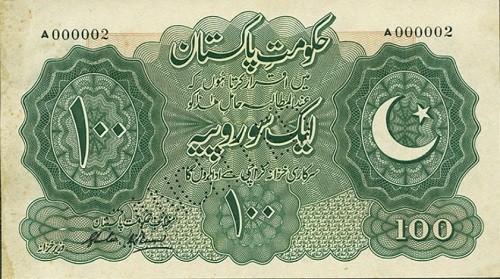 A 000002
A 000002
حکومتِ پاکستان
میں اقرار کرتا ہوں کہ
عندالمطالبہ حامل ہذا کو
ایک سو روپیہ
سرکاری خزانہ کراچی سے ادا کروں گا
۱۰۰
۱۰۰
حکومت پاکستان
وزیر خزانہ
100